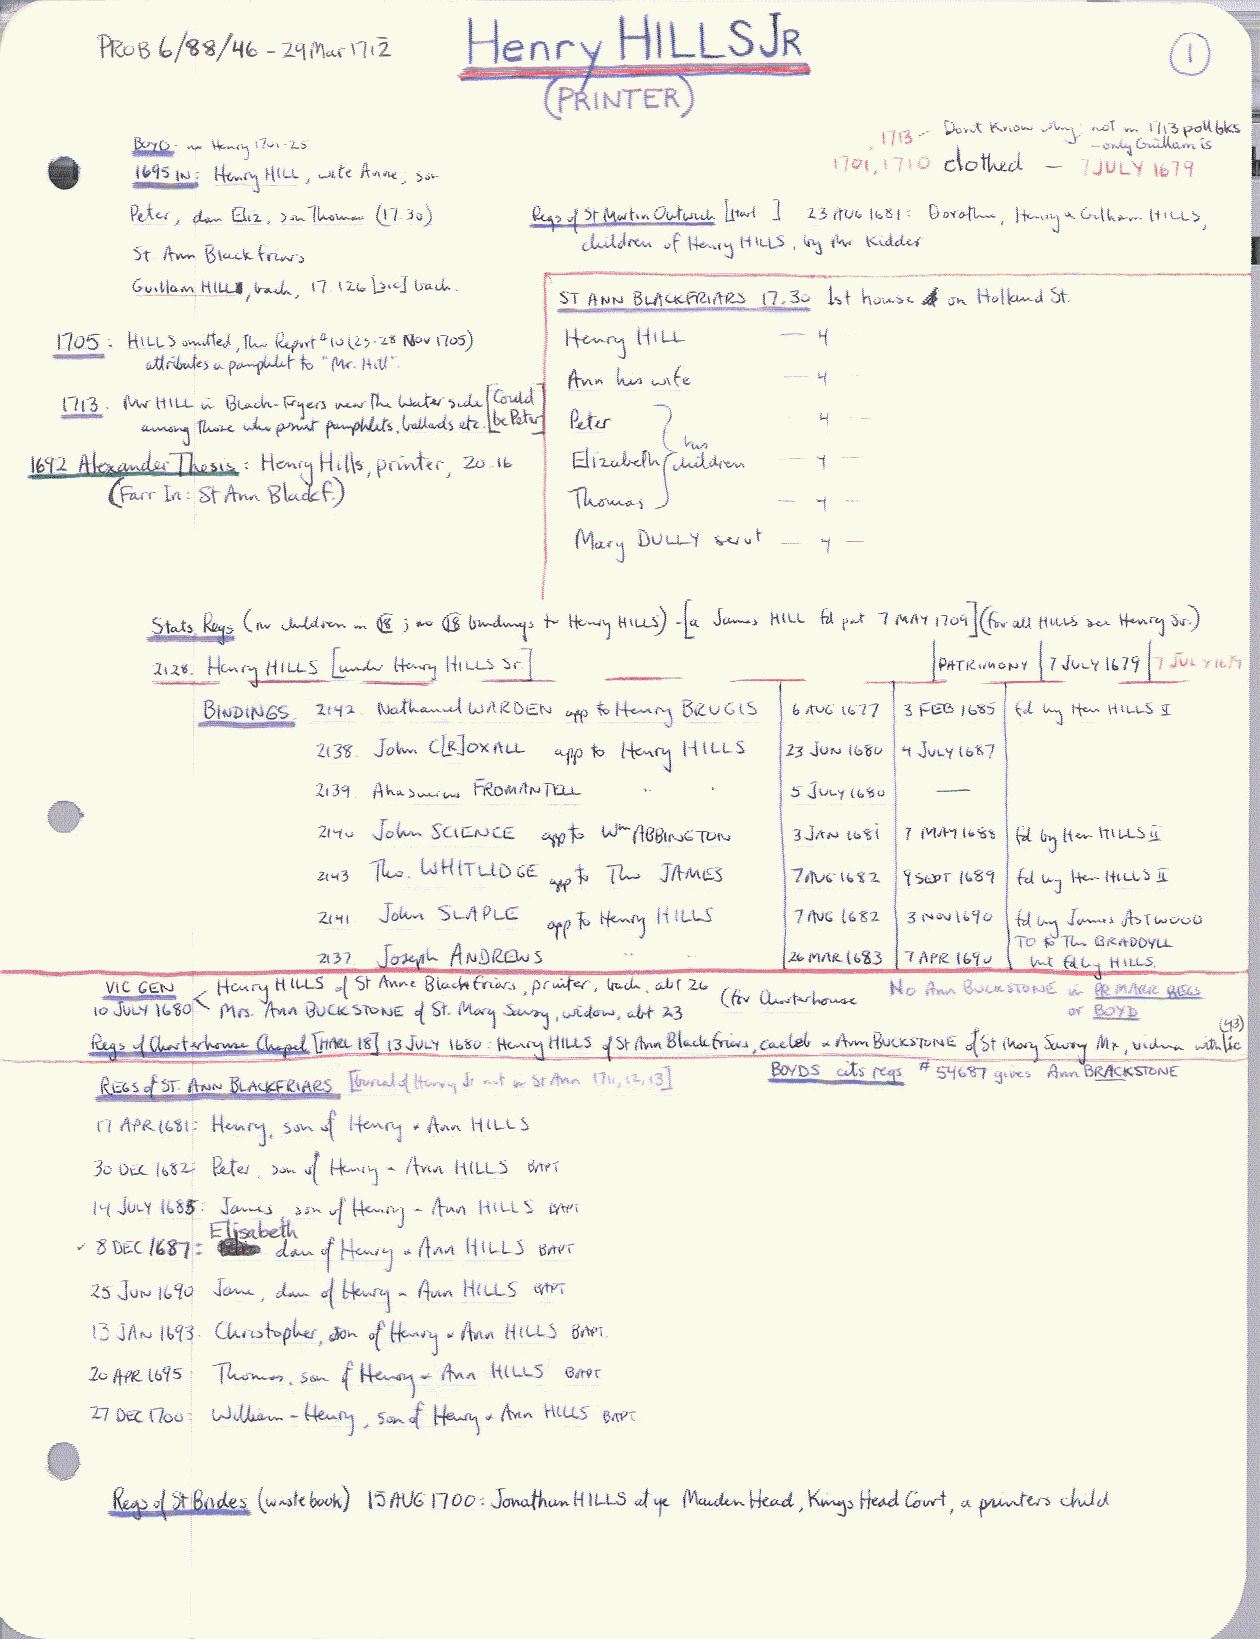 PROB 6/88/46 - 29 Mar 1712
Henry HILLS JR
(PRINTER)
1
BOYD - no Henry 1701-25
1695 IN: Henry HILL, wife Anne, son
Peter, dau Eliz, son Thomas (17.30)
St Ann Blackfriars
Guillam HILLS, bach, 17.126 [sic] bach.
1713 - Don't Know why not in 1713 poll bks
- only Guillam is
1701, 1710 clothed - 7 JULY 1679
Regs of St Martin Outwich 23 AUG 1681: Dorothu, Henry & Gilham HILLS,
children of Henry HILLS, by Mr Kidder
1705: HILLS omitted, Thu Report #10 (25-28 Nov 1705)
attributes a pamphlet to "Mr. Hill".
1713. Mr HILL in Black-Fryers near the Water side [Could
among those who print pamphlets, ballads etc. be Peter]
1692 Alexander Thesis: Henry Hills, printer, 20.16
(Farr In: St Ann Blackf.)
ST ANN BLACKFRIARS 17.30 1st house on Holland St.
Henry HILL — 4
Ann his wife — 4
Peter 4 —
Elizabeth his children — 4 —
Thomas — 4 —
Mary DULLY servt — 4 —
Stats Regs (no children in 18; no 18 bindings to Henry HILLS) - [a James HILL fd pat 7 MAY 1709] (for all HILLS see Henry Sr.)
2128. Henry HILLS [under Henry HILLS Sr.] PATRIMONY 7 JULY 1679 7 JULY 1679
BINDINGS 2142. Nathanael WARDEN app to Henry BRUGIS 6 AUG 1677 3 FEB 1685 fd by Hen HILLS II
2138. John C[R]OXALL app to Henry HILLS 23 JUN 1680 4 JULY 1687
2139. Ahasuerus FROMANTELL " " 5 JULY 1680 —
2140 John SCIENCE app to Wm ABBINGTON 3 JAN 1681 7 MAY 1688 fd by Hen HILLS II
2143 Tho. WHITLIDGE app to Tho JAMES 7 AUG 1682 9 SEPT 1689 fd by Hen HILLS II
2141 John SLAPLE app to Henry HILLS 7 AUG 1682 3 NOV 1690 fd by James ASTWOOD
2137 Joseph ANDREWS " " 26 MAR 1683 7 APR 1690 TO to Tho BRADDYLL
but fd by HILLS.
VIC GEN Henry HILLS of St Anne Blackfriars, printer, bach, abt 26
10 JULY 1680 Mrs. Ann BUCKSTONE of St. Mary Savoy, widow, abt 23 (for Charterhouse
No Ann BUCKSTONE in PR MARR REGS
or BOYD
Regs of Charterhouse Chapel [HARL 18] 13 JULY 1680: Henry HILLS of St Ann Blackfriars, caeleb & Ann BUCKSTONE of St Mary Savoy Mx, vidua with lic (43)
BOYDS cits regs # 54687 gives Ann BRACKSTONE
REGS of ST. ANN BLACKFRIARS [burial of Henry Jr not in St Ann 1711, 12, 13]
17 APR 1681: Henry, son of Henry & Ann HILLS
30 DEC 1682: Peter, son of Henry & Ann HILLS BAPT
14 JULY 1685: James, son of Henry & Ann HILLS BAPT
Elisabeth
✓ 8 DEC 1687: dau of Henry & Ann HILLS BAPT
25 JUN 1690 Jane, dau of Henry & Ann HILLS BAPT
13 JAN 1693. Christopher, son of Henry & Ann HILLS BAPT.
20 APR 1695: Thomas, son of Henry & Ann HILLS BAPT
27 DEC 1700: William-Henry, son of Henry & Ann HILLS BAPT
Regs of St Brides (waste book) 15 AUG 1700: Jonathan HILLS at ye Maiden Head, Kings Head Court, a printers child